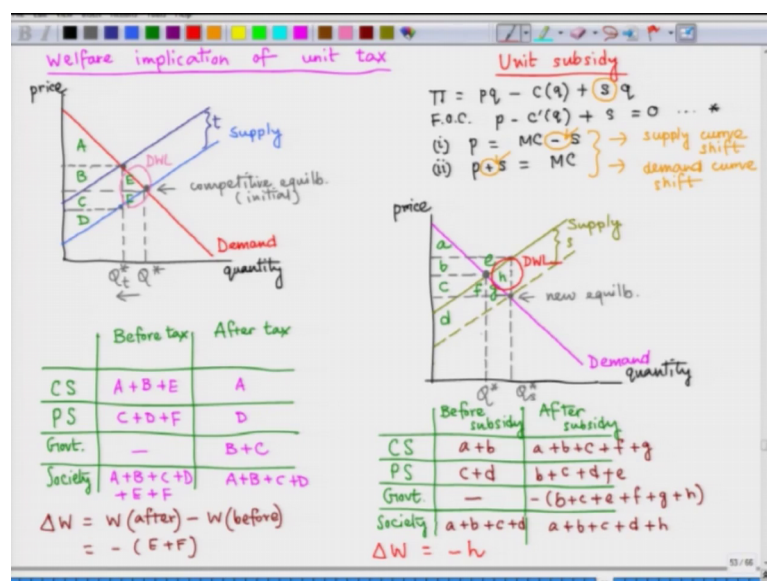 Welfare implication of unit tax
price
A
B
C
D
E
F
DWL
t
Supply
competitive equilb.
(initial)
Demand
quantity
Q*t Q*
←
Before tax After tax
CS A+B+E A
PS C+D+F D
Govt. — B+C
Society A+B+C+D A+B+C+D
+E+F
ΔW = W(after) - W(before)
= - (E+F)
Unit subsidy
Π = pq - c(q) + s q
F.O.C. p - c'(q) + s = 0 ... *
(i) p = MC - s → supply curve
shift
(ii) p + s = MC → demand curve
shift
price
a
b
c
d
e
f g
h
DWL
Supply
s
← new equilb.
Demand
quantity
Q* Q*s
Before
subsidy
After
subsidy
CS a+b a+b+c+f+g
PS c+d b+c+d+e
Govt. — -(b+c+e+f+g+h)
Society a+b+c+d a+b+c+d+h
ΔW = -h
53 / 66